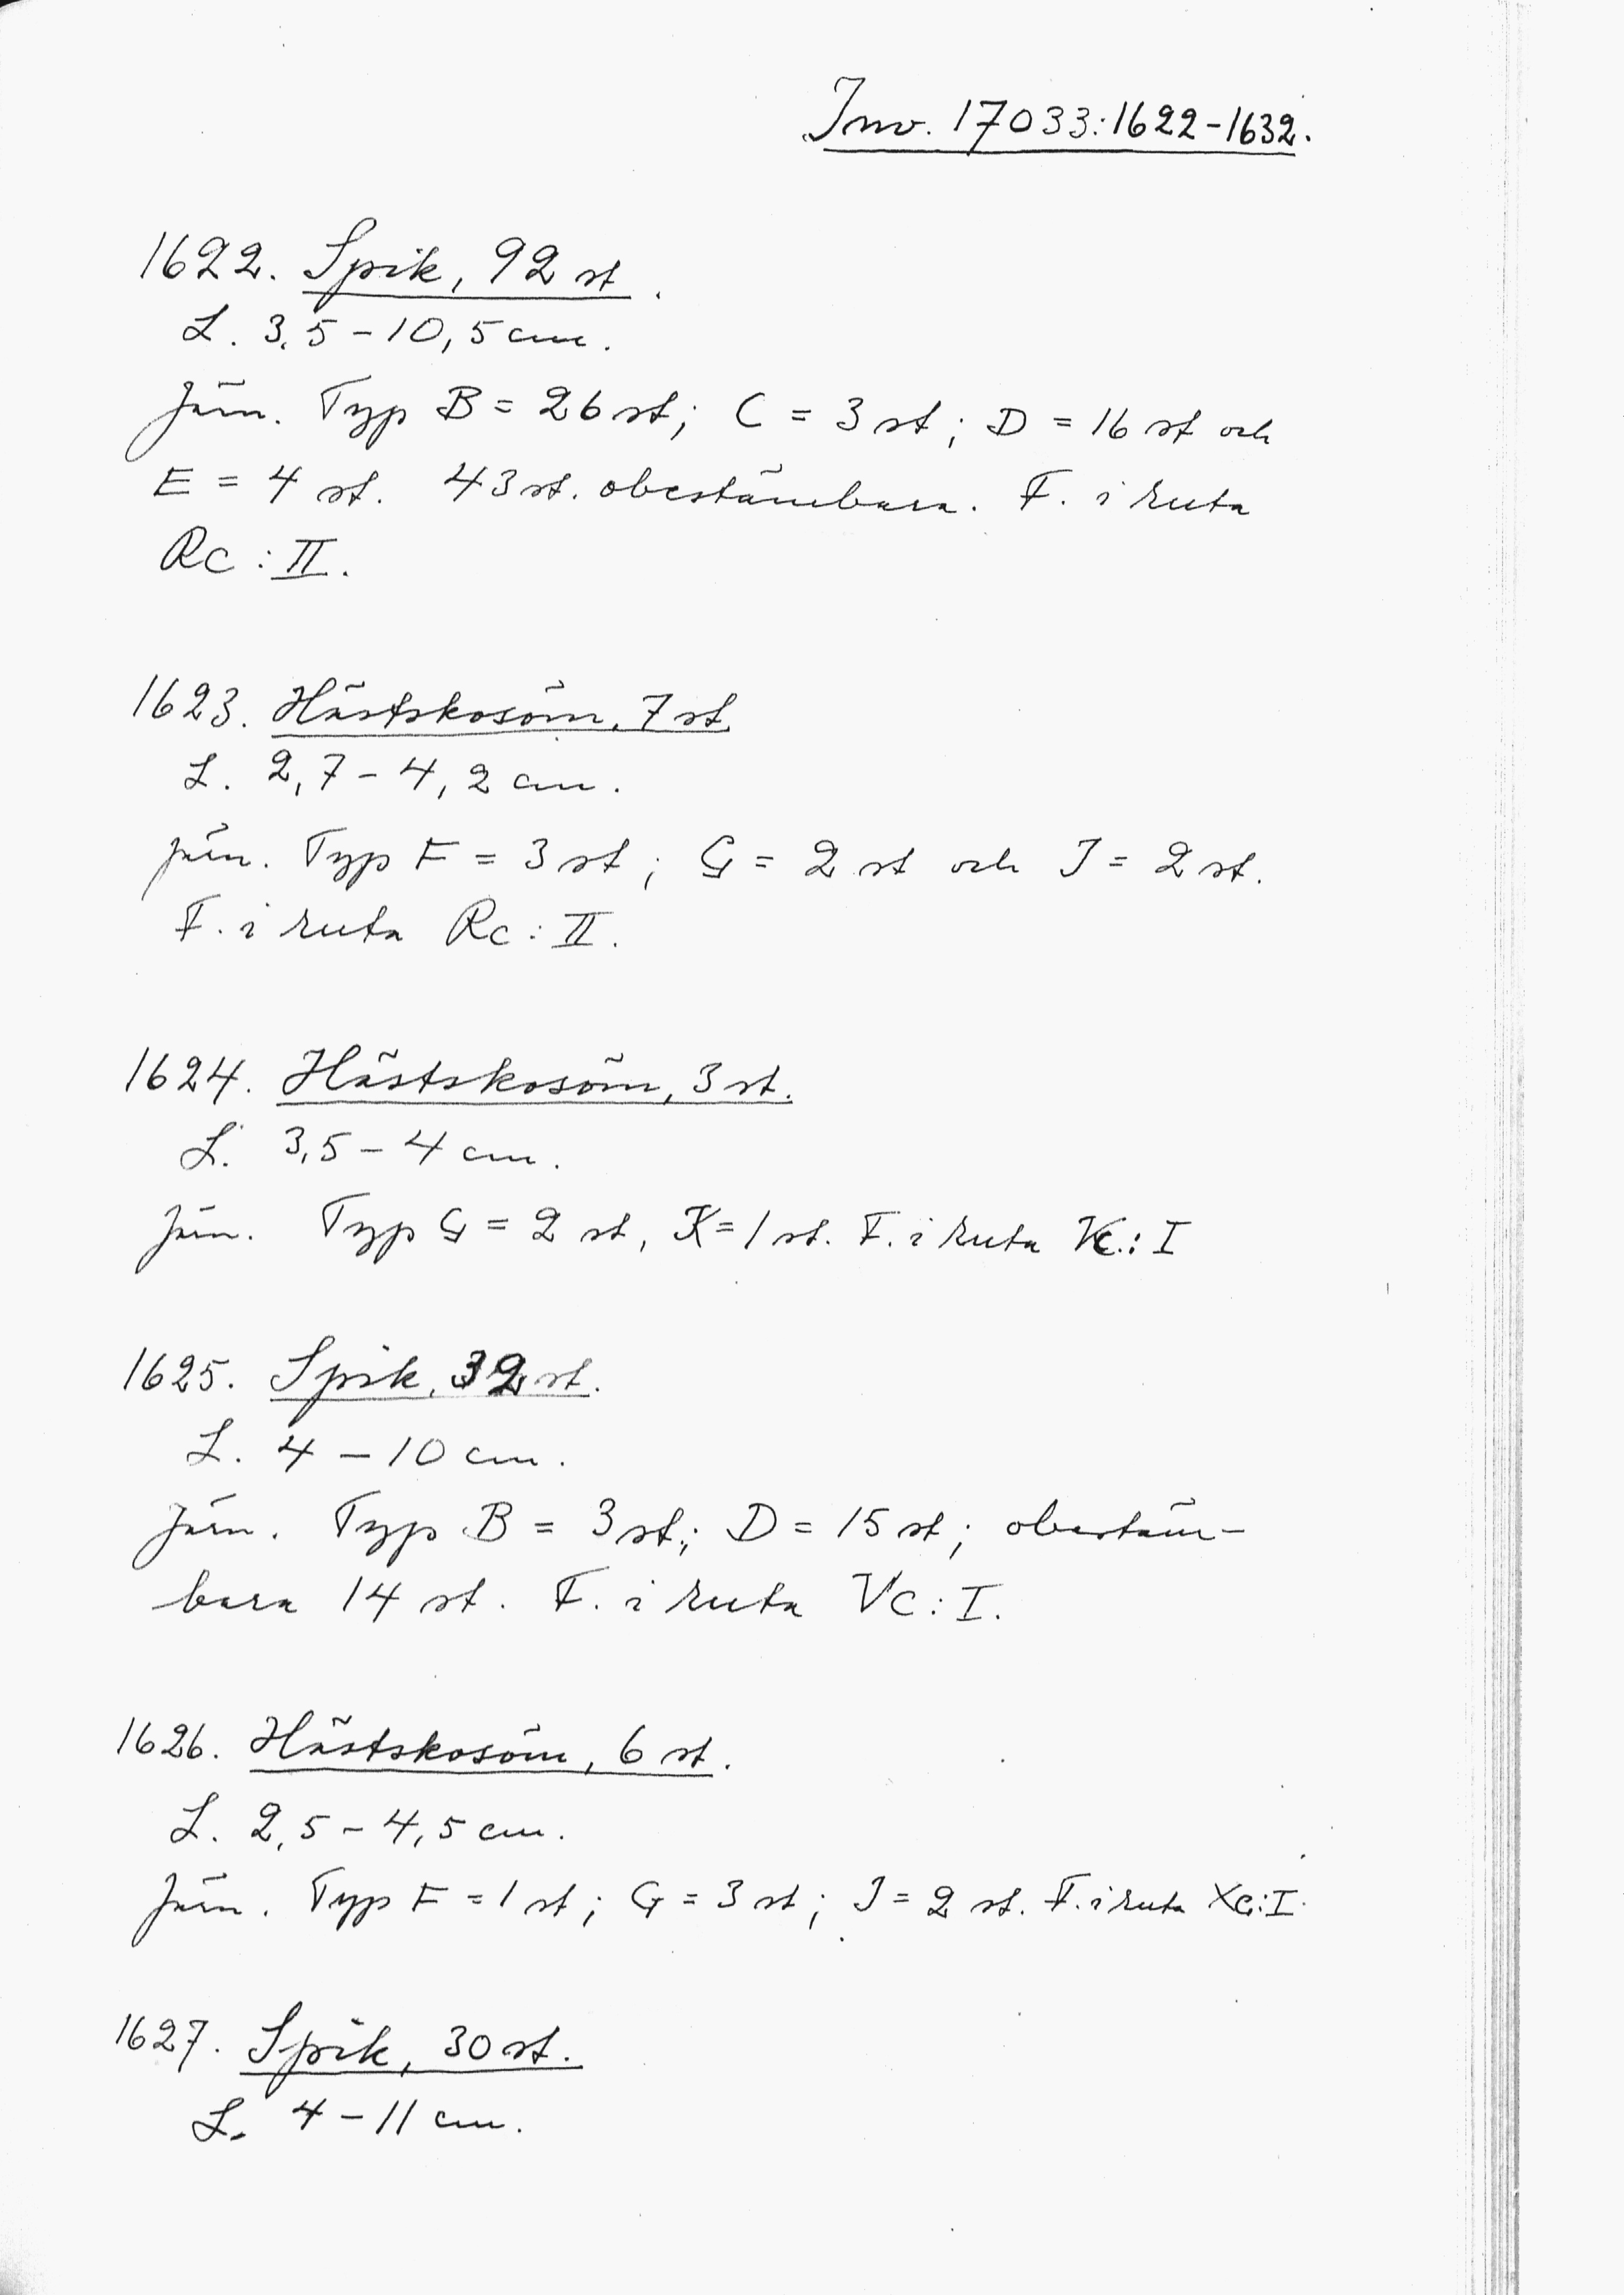 Inv. 17033:1622-1632.
1622. Spik, 92 st.
L. 3,5 - 10,5 cm.
Järn. Typ B = 26 st; C = 3 st; D = 16 st och
E = 4 st. 43 st. obestämbara. F. i ruta
Rc : II.
1623. Hästskosöm, 7 st.
L. 2,7 - 4,2 cm.
Järn. Typ F = 3 st; G = 2 st och J = 2 st.
F. i ruta Rc : II.
1624. Hästskosöm, 3 st.
L. 3,5 - 4 cm.
Järn. Typ G = 2 st, K = 1 st. F. i ruta Vc : I
1625. Spik, 32 st.
L. 4 - 10 cm.
Järn. Typ B = 3 st; D = 15 st; obestäm-
bara 14 st. F. i ruta Vc : I.
1626. Hästskosöm, 6 st.
L. 2,5 - 4,5 cm.
Järn. Typ F = 1 st; G = 3 st; J = 2 st. F. i ruta Xc : I.
1627. Spik, 30 st.
L. 4 - 11 cm.